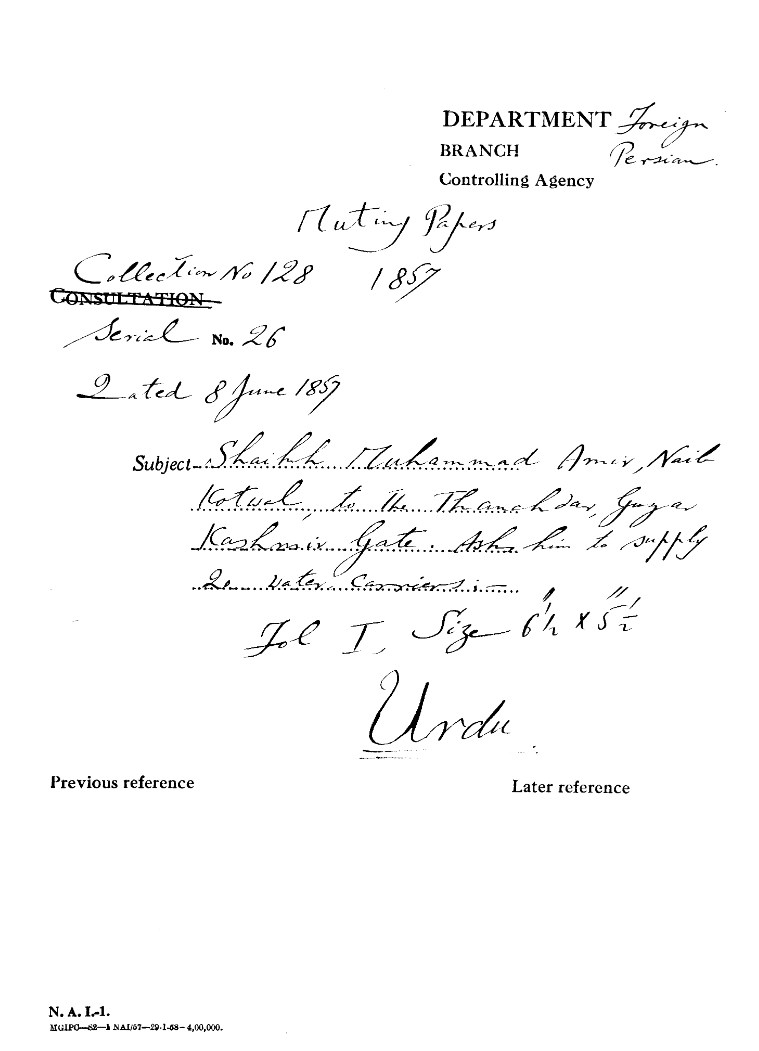 DEPARTMENT Foreign
BRANCH Persian.
Controlling Agency
Mutiny Papers
Collection No 128 1857
CONSULTATION
Serial No. 26
Dated 8 June 1857
Subject Shaikh Muhammad Amir, Naib
Kotwal, to the Thanahdar, Guzar
Kashmir Gate. Asks him to supply
20 water carriers :—
Fol I, Size 6½" x 5½"
Urdu
Previous reference Later reference
N. A. I.-1.
MGIPC—82—1 NAI/57—29-1-58—4,00,000.